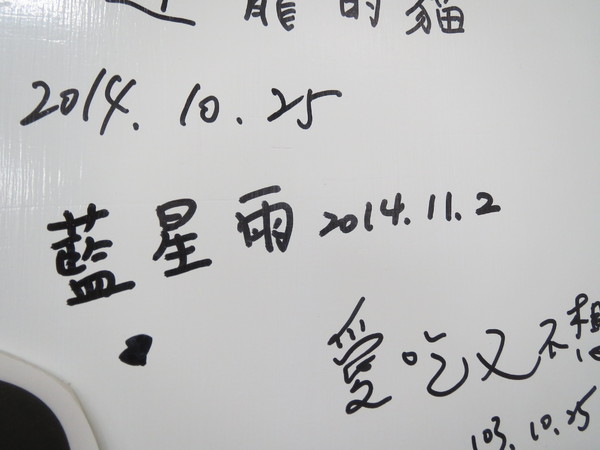 龍的貓
2014.10.25
藍星雨 2014.11.2
愛吃又不想
103.10.25